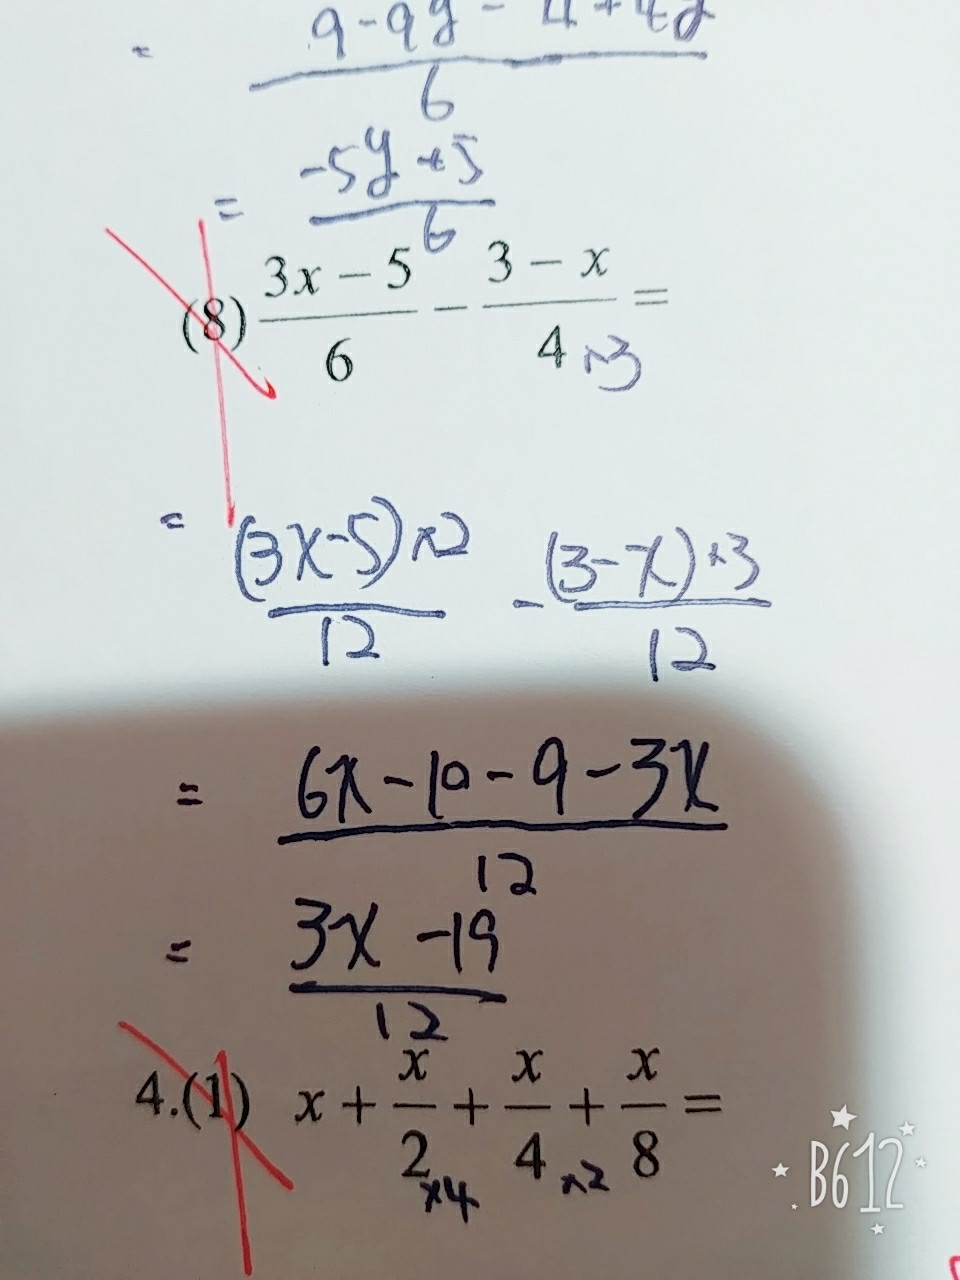 = (9-9y-4+4y)/6
= (-5y+5)/6
(8) (3x-5)/6 - (3-x)/4 = ×3
= ((3x-5)×2)/12 - ((3-x)×3)/12
= (6x-10-9-3x)/12
= (3x-19)/12
4.(1) x + x/2 + x/4 + x/8 =
×4 ×2
B612